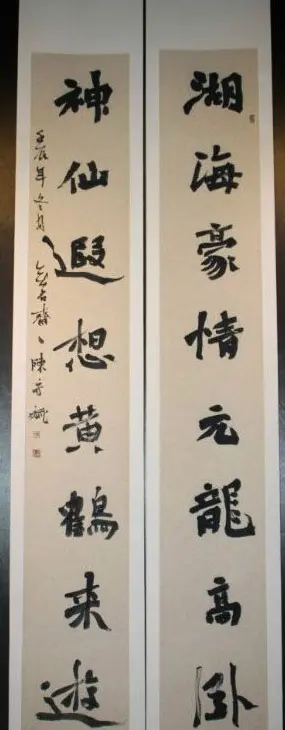 湖海豪情元龍高卧
神仙遐想黄鶴来遊
壬辰年冬月 古齋 陳